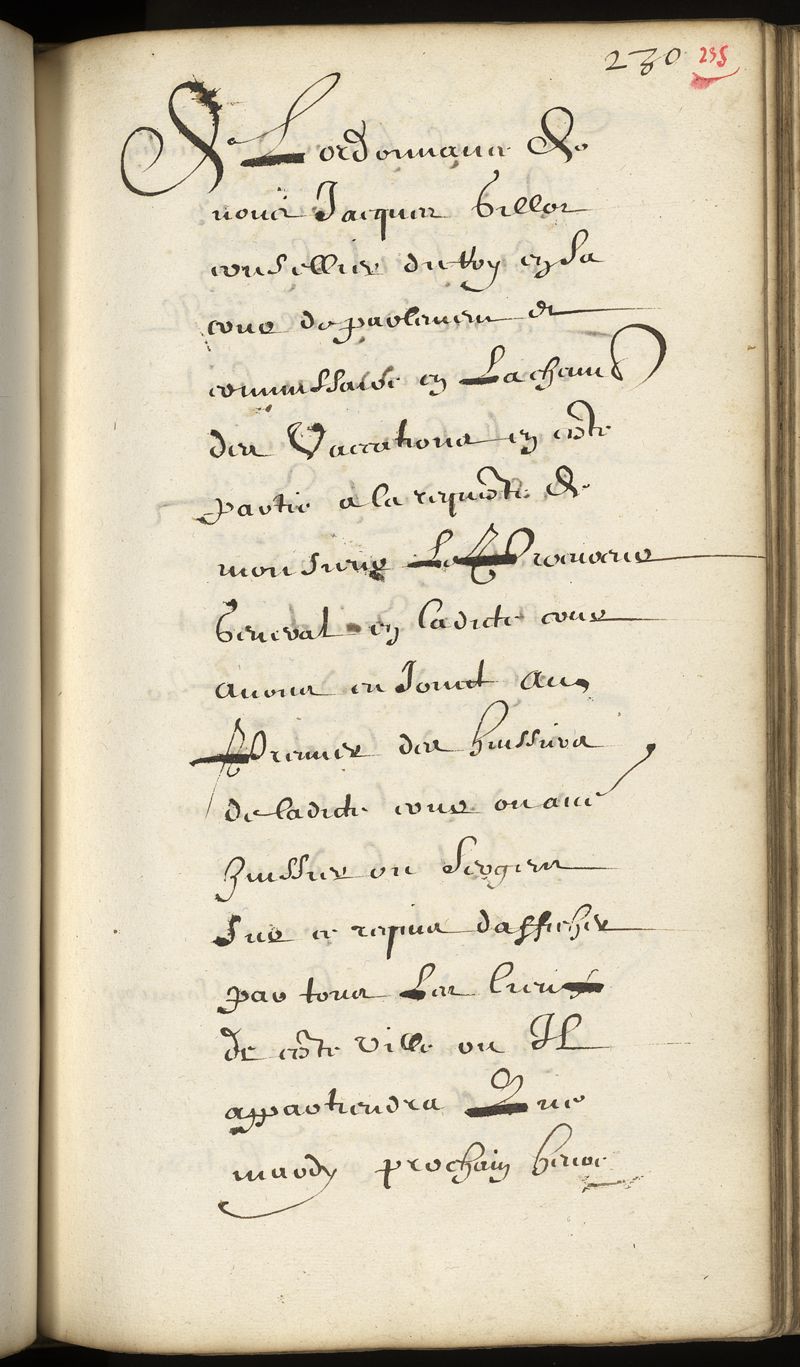 230 235
De Lordonnance de
nous Jacques Gillot
conseiller du Roy en sa
cour de parlement et
commissaire en La chamb
des Vaccations en ceste
partie a la requeste de
monsieur Le Procureur
General en ladicte cour
avons enJoinct au
Premier des huissiers
de ladicte cour ou aue
huissier ou sergent
sur ce requis dafficher
par tous Les lieux
de ceste ville ou Il
appartiendra Que
mardy prochain heure